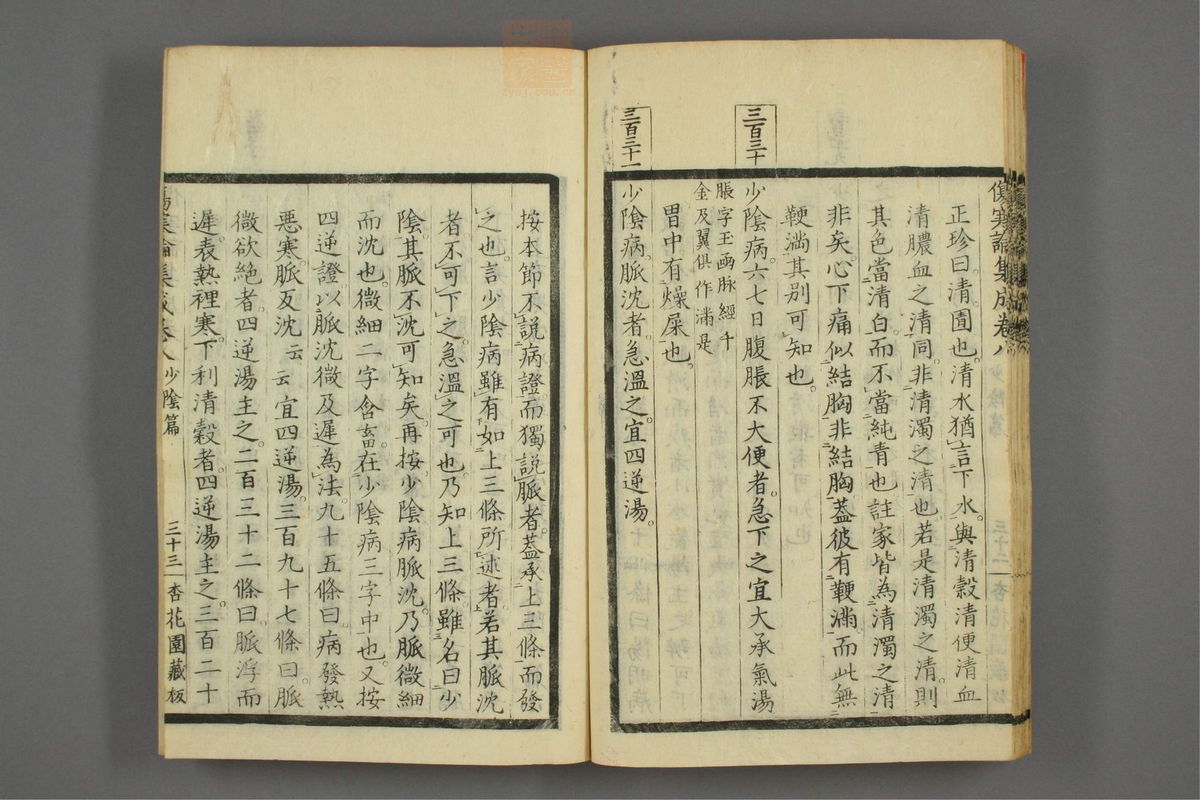 傷寒論集成卷八
正珍曰。清圊也。清水猶言下水。與清穀清便清血
清膿血之清同。非清濁之清也。若是清濁之清。則
其色當清白。而不當純青也。註家皆為清濁之清
非矣。心下痛似結胸。非結胸。蓋彼有鞕滿。而此無
鞕滿。其別可知也。
三百三十
少陰病。六七日腹脹不大便者。急下之宜大承氣湯
脹字王函脉經千
金及翼俱作滿是
胃中有燥屎也。
三百三十一
少陰病。脈沈者。急溫之。宜四逆湯。
按本節不說病證。而獨說脈者。蓋承上三條而發
之也。言少陰病雖有如上三條所述者。若其脈沈
者不可下之。急溫之可也。乃知上三條。雖名曰少
陰。其脈不沈可知矣。再按少陰病脈沈。乃脈微細
而沈也。微細二字含畜在少陰病三字中也。又按
四逆證以脈沈微及遲為法。九十五條曰。病發熱
惡寒。脈反沈云云宜四逆湯。三百九十七條曰。脈
微欲絕者。四逆湯主之。二百三十二條曰。脈浮而
遲。表熱裡寒。下利清穀者。四逆湯主之。三百二十
傷寒論集成卷八 少陰篇 三十三 杏花園藏板